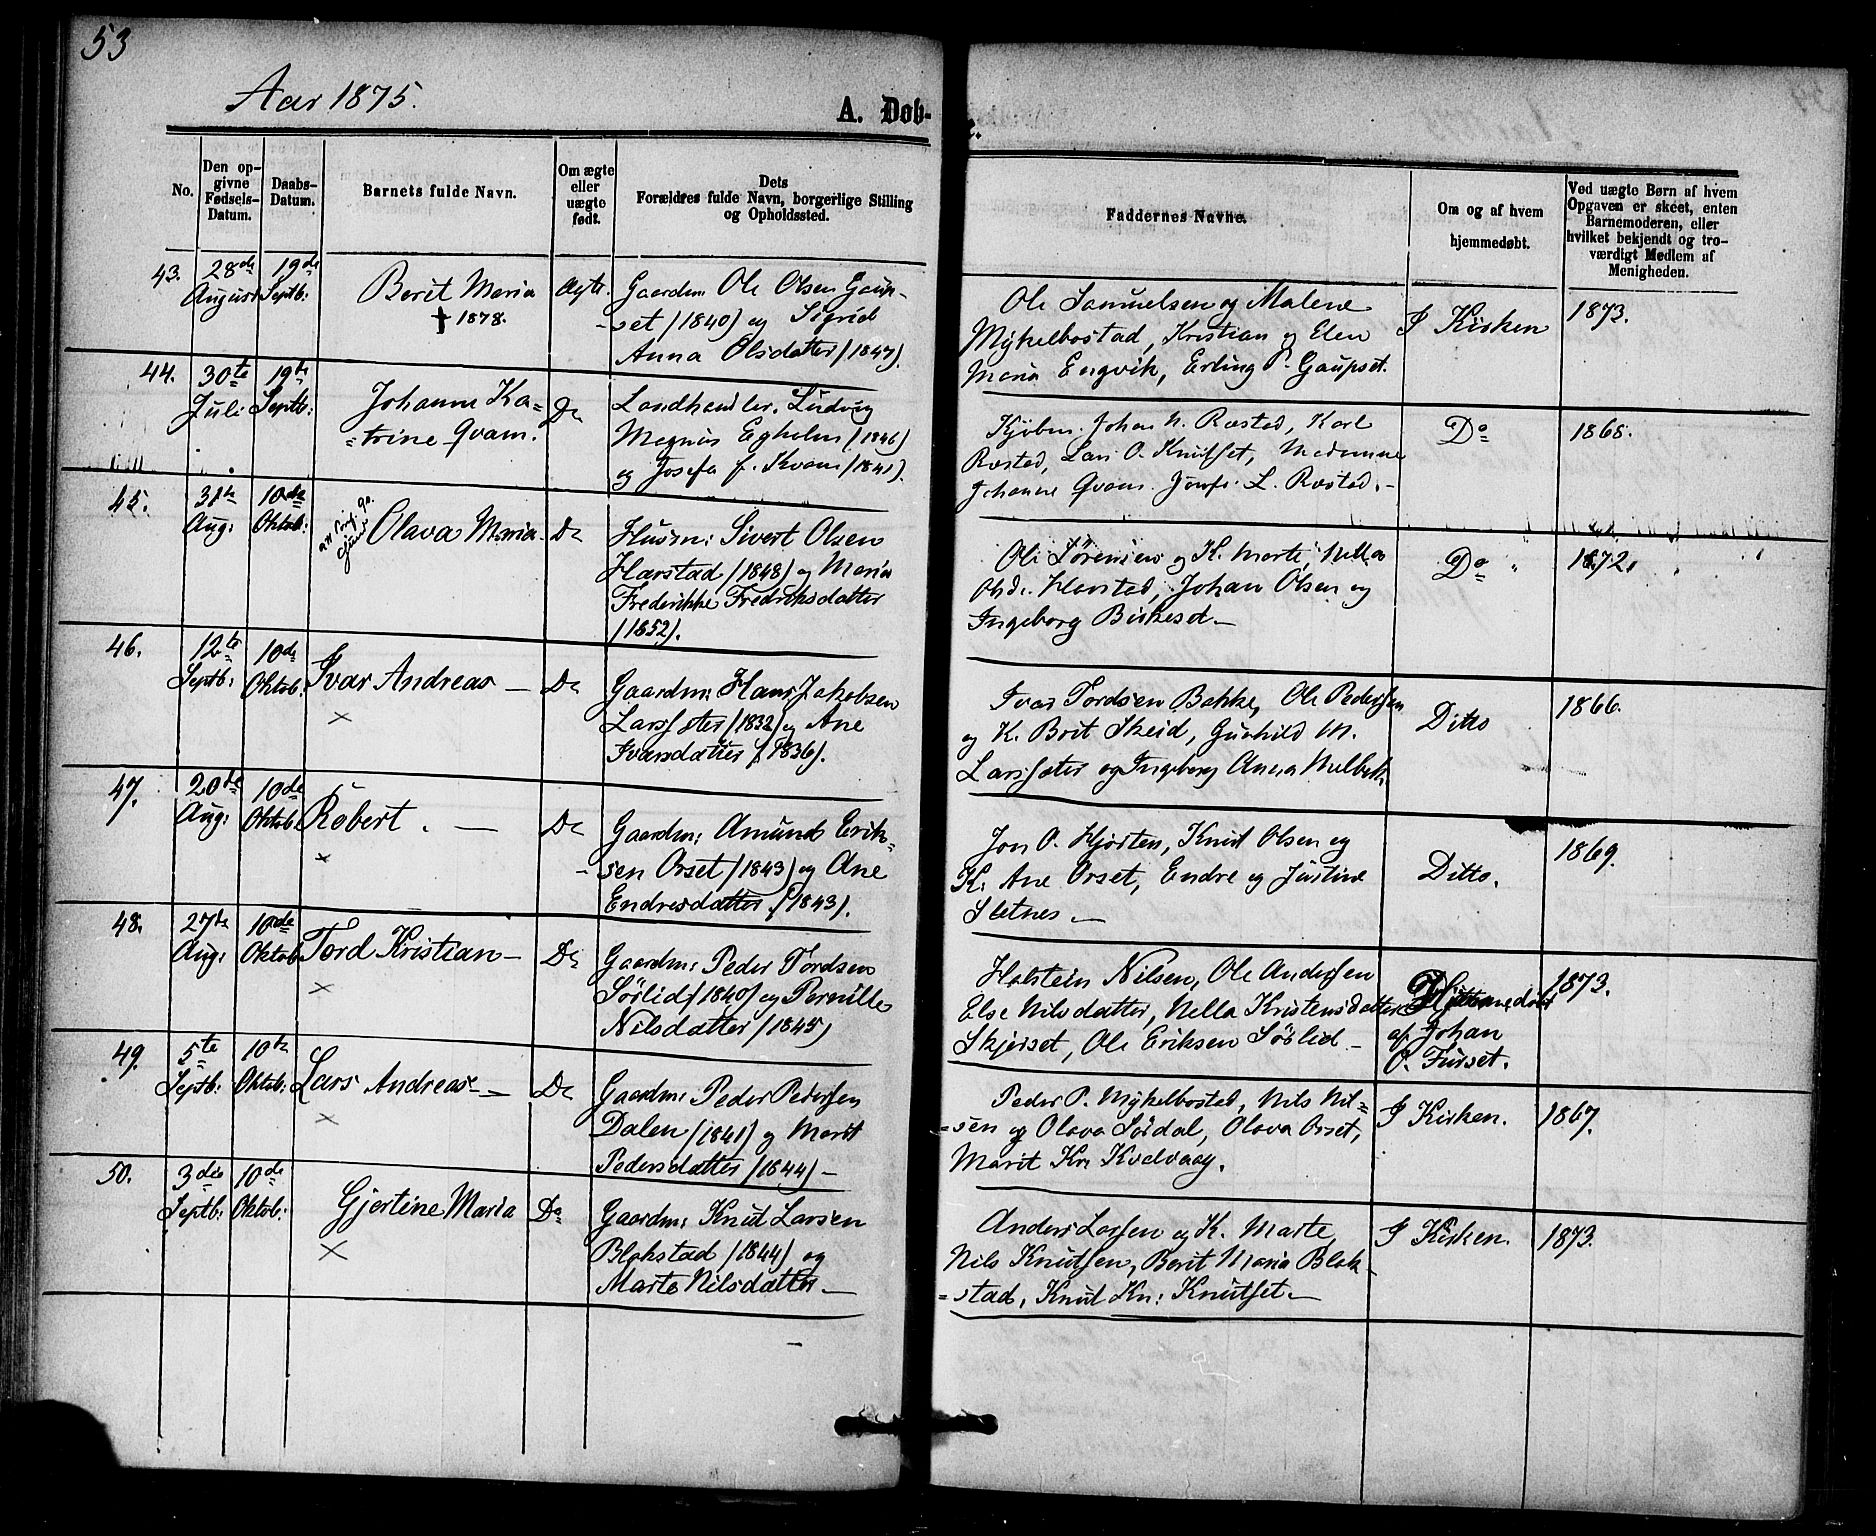 53
Aar 1875.
A. Døb-
e.
No.
Den op-
givne
Fødsels-
Datum.
Daabs-
Datum.
Barnets fulde Navn.
Om ægte
eller
uægte
født.
Dets
Forældres fulde Navn, borgerlige Stilling
og Opholdssted.
Faddernes Navne.
Om og af hvem
hjemmedøbt.
Ved uægte Børn af hvem
Opgaven er skeet, enten
Barnemoderen, eller
hvilket bekjendt og tro-
værdigt Medlem af
Menigheden.
43.
28de
August
19de
Septb:
Berit Maria
† 1878.
Ægte.
Gaardm: Ole Olsen Gaup-
-set (1840) og Sigrid
Anna Olsdatter (1847).
Ole Samuelsen og Malene
Myhelbostad, Kristian og Elen
Maria Engvik, Erling P. Gaupset.
I Kirken
1873.
44.
30te
Juli
19de
Septb:
Johanne Ka=
=trine Qvam.
Do
Landhandler Ludvig
Magnus Egholm (1846)
og Josefa f. Kvam (1841).
Kjøbm. Johan N. Ræstad, Karl
Ræstad, Lars O. Knutset, Madamme
Johanne Qvam. Jomfr. L. Ræstad.-
Do
1868.
45.
31te
Aug:
10de
Oktob:
Olava Maria
Do
Husm: Sivert Olsen
Harstad (1848) og Maria
Frederikke Fredriksdatter
(1852).
Ole Sørensen og K. Marte, Nella
Olsd. Harstad, Johan Olsen og
Ingeborg Birkeset-
Do
1872.
46.
12te
Septb:
10de
Oktob.
Ivar Andreas -
×
Do
Gaardm: Hans Jakobsen
Larssæter (1832) og Ane
Ivarsdatter (1836).
Ivar Tordsen Bakke, Ole Pedersen
og K. Brit Skeid, Gunhild M.
Larssæter og Ingeborg Anna
Ditto
1866.
47.
20de
Aug:
10de
Oktob.
Robert. -
×
Do
Gaardm: Amund Erik=
-sen Orset (1843) og Ane
Endresdatter (1843).
Jon O. Hjorten, Knut Olsen og
K. Ane Orset, Endre og Justine
Sletnes -
Ditto.
1869.
48.
27de
Aug:
10de
Oktob.
Tord Kristian -
×
Do
Gaardm: Peder Tordsen
Sørlid (1840) og Pernille
Nilsdatter (1845)
Holstein Nilsen, Ole Andersen
Else Nilsdatter, Nella Kristensdatter
Skjerset, Ole Eriksen Sørlid -
Hjemmedøbt
af Johan
O. Furset.
1873.
49.
5te
Septb:
10de
Oktob:
Lars Andreas -
×
Do
Gaardm: Peder Pedersen
Dalen (1841) og Marit
Pedersdatter (1844) -
Peder P. Myhelbostad, Nils Nil=
=sen og Olava Sørdal, Olava Orset,
Marit Kr. Kvelvaag.
I Kirken.
1867.
50.
3die
Septb:
10de
Oktob:
Gjertine Maria
×
Do
Gaardm: Knut Larsen
Blakstad (1844) og
Marte Nilsdatter -
Anders Larsen og K. Marte,
Nils Knutsen, Berit Maria Blak
=stad, Knut Kn: Knutset. -
I Kirken.
1873.